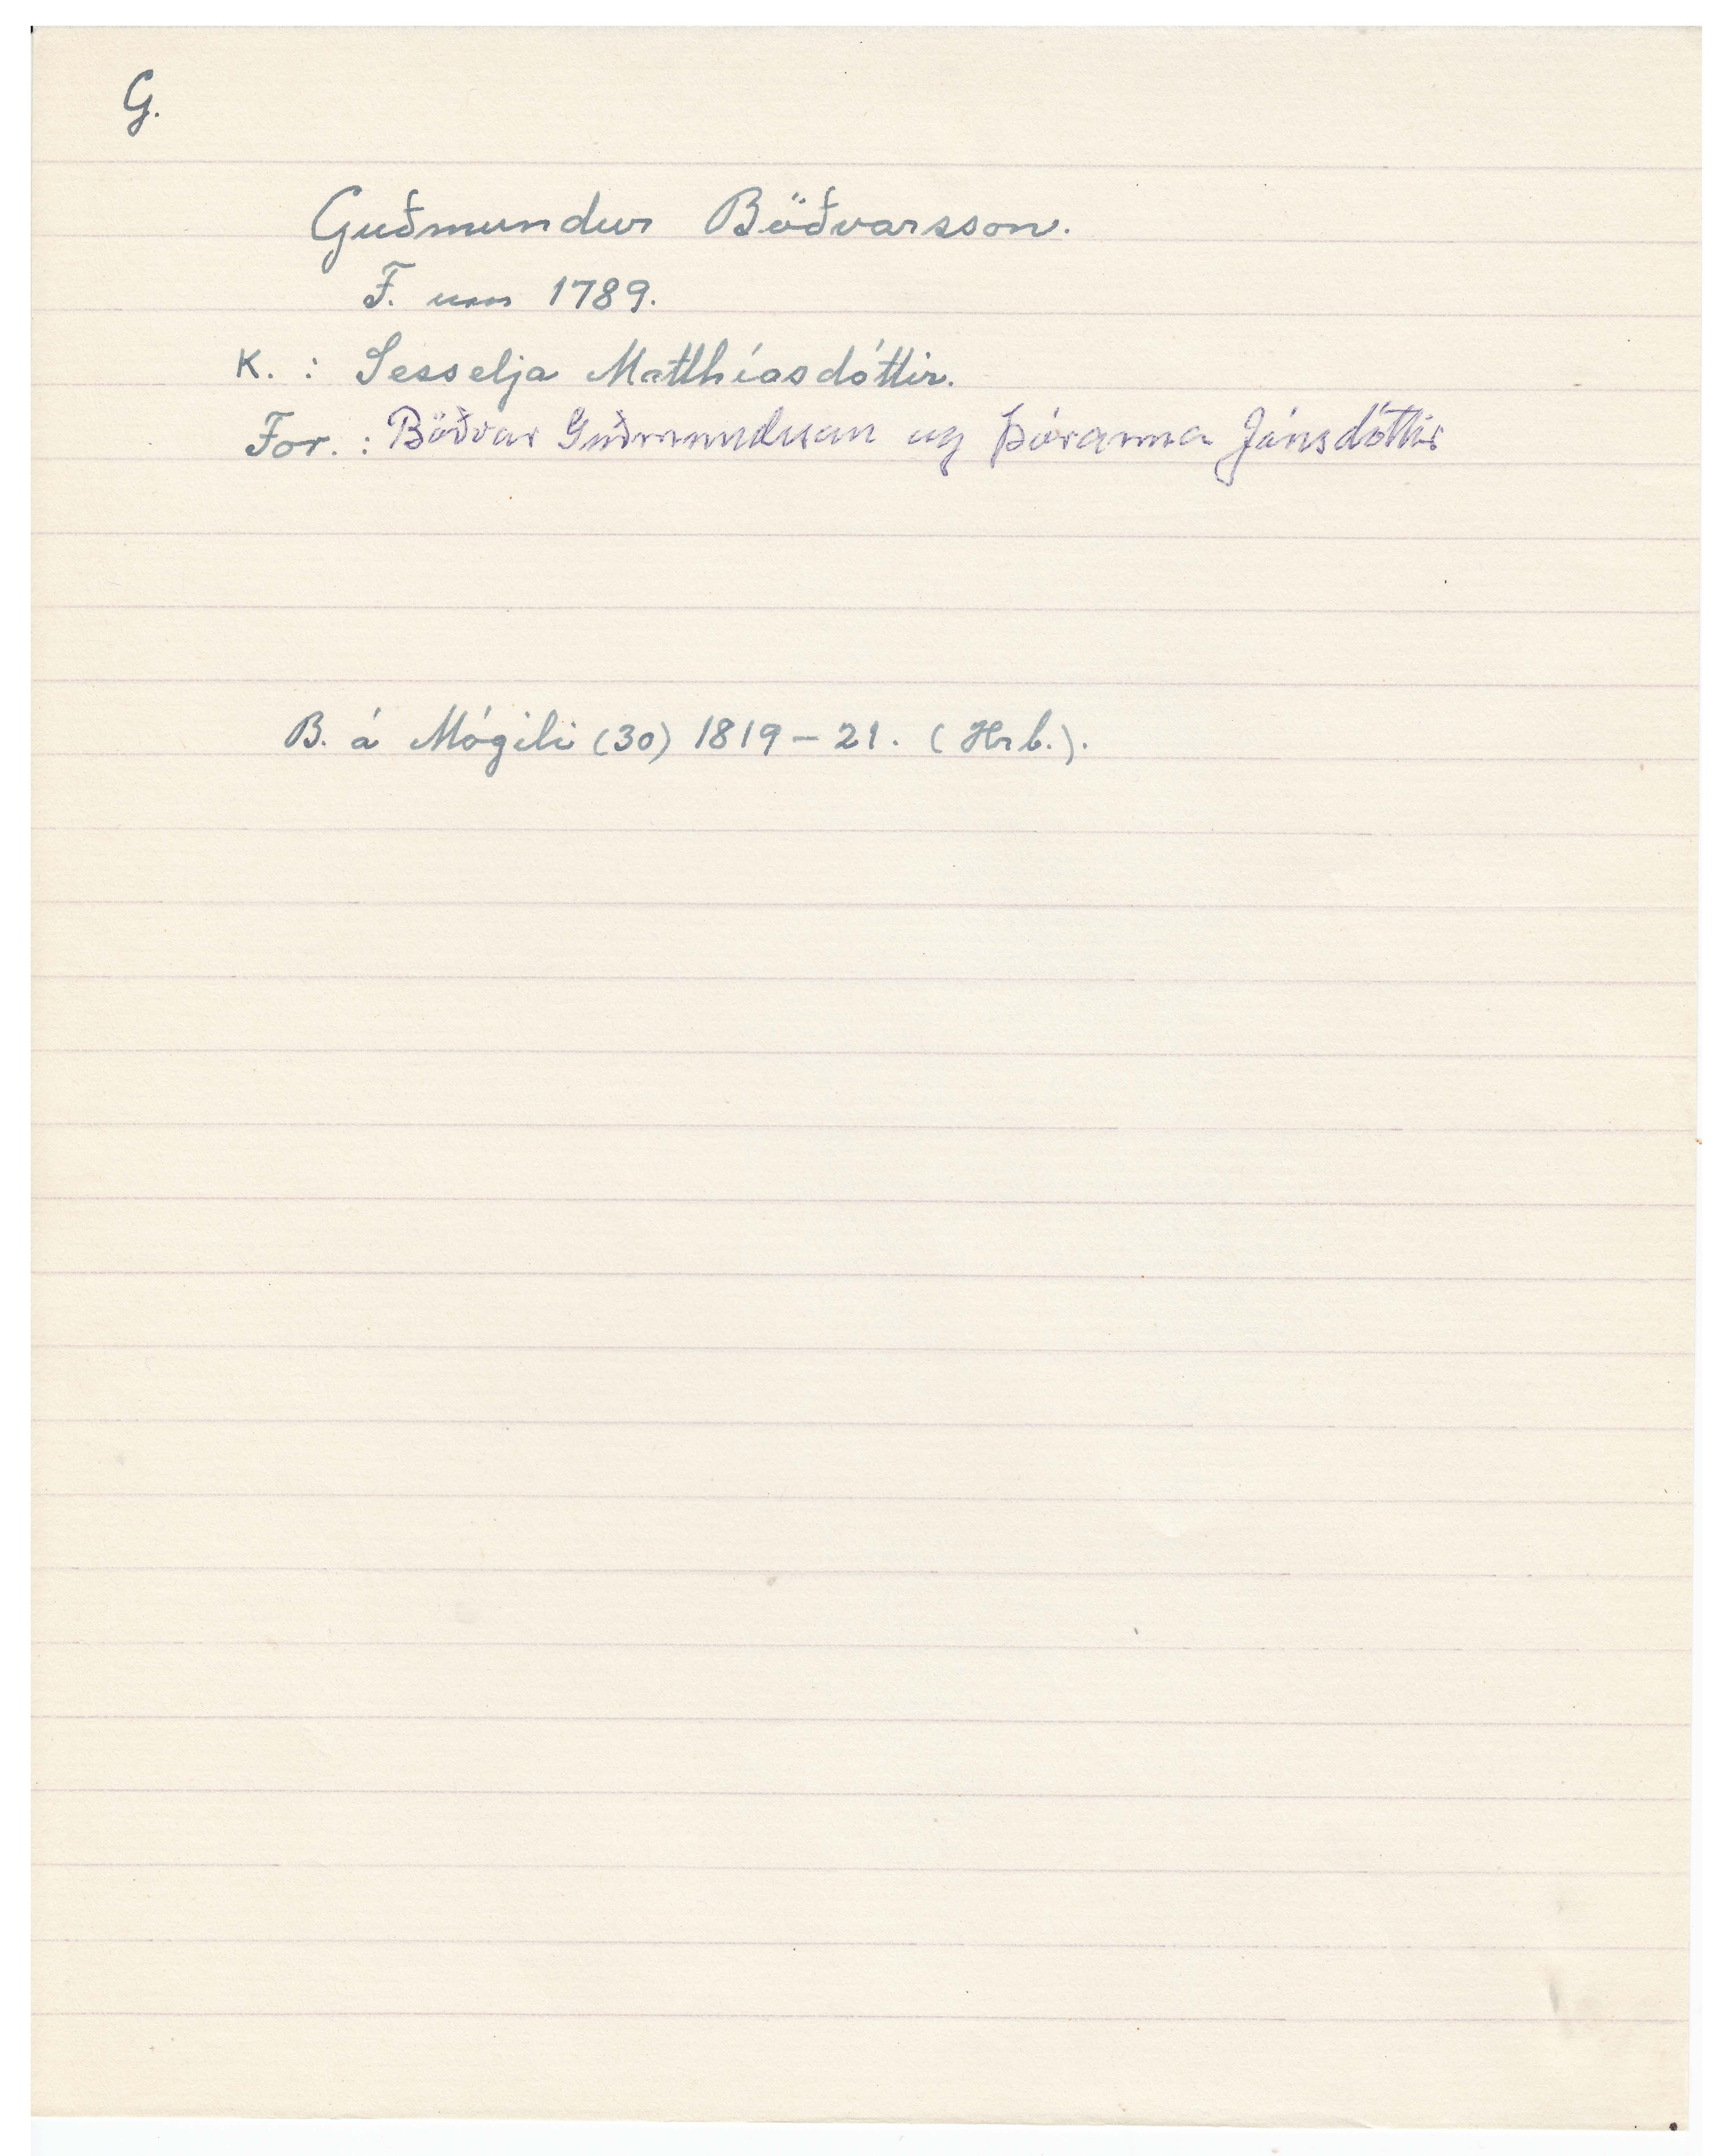 G.
Guðmundur Böðvarsson.
F. um 1789.
K. : Sesselja Matthíasdóttir.
For. : Böðvar Guðmundsson og Þóranna Jónsdóttir
B. á Mógili (30) 1819 – 21. (Hrb.).